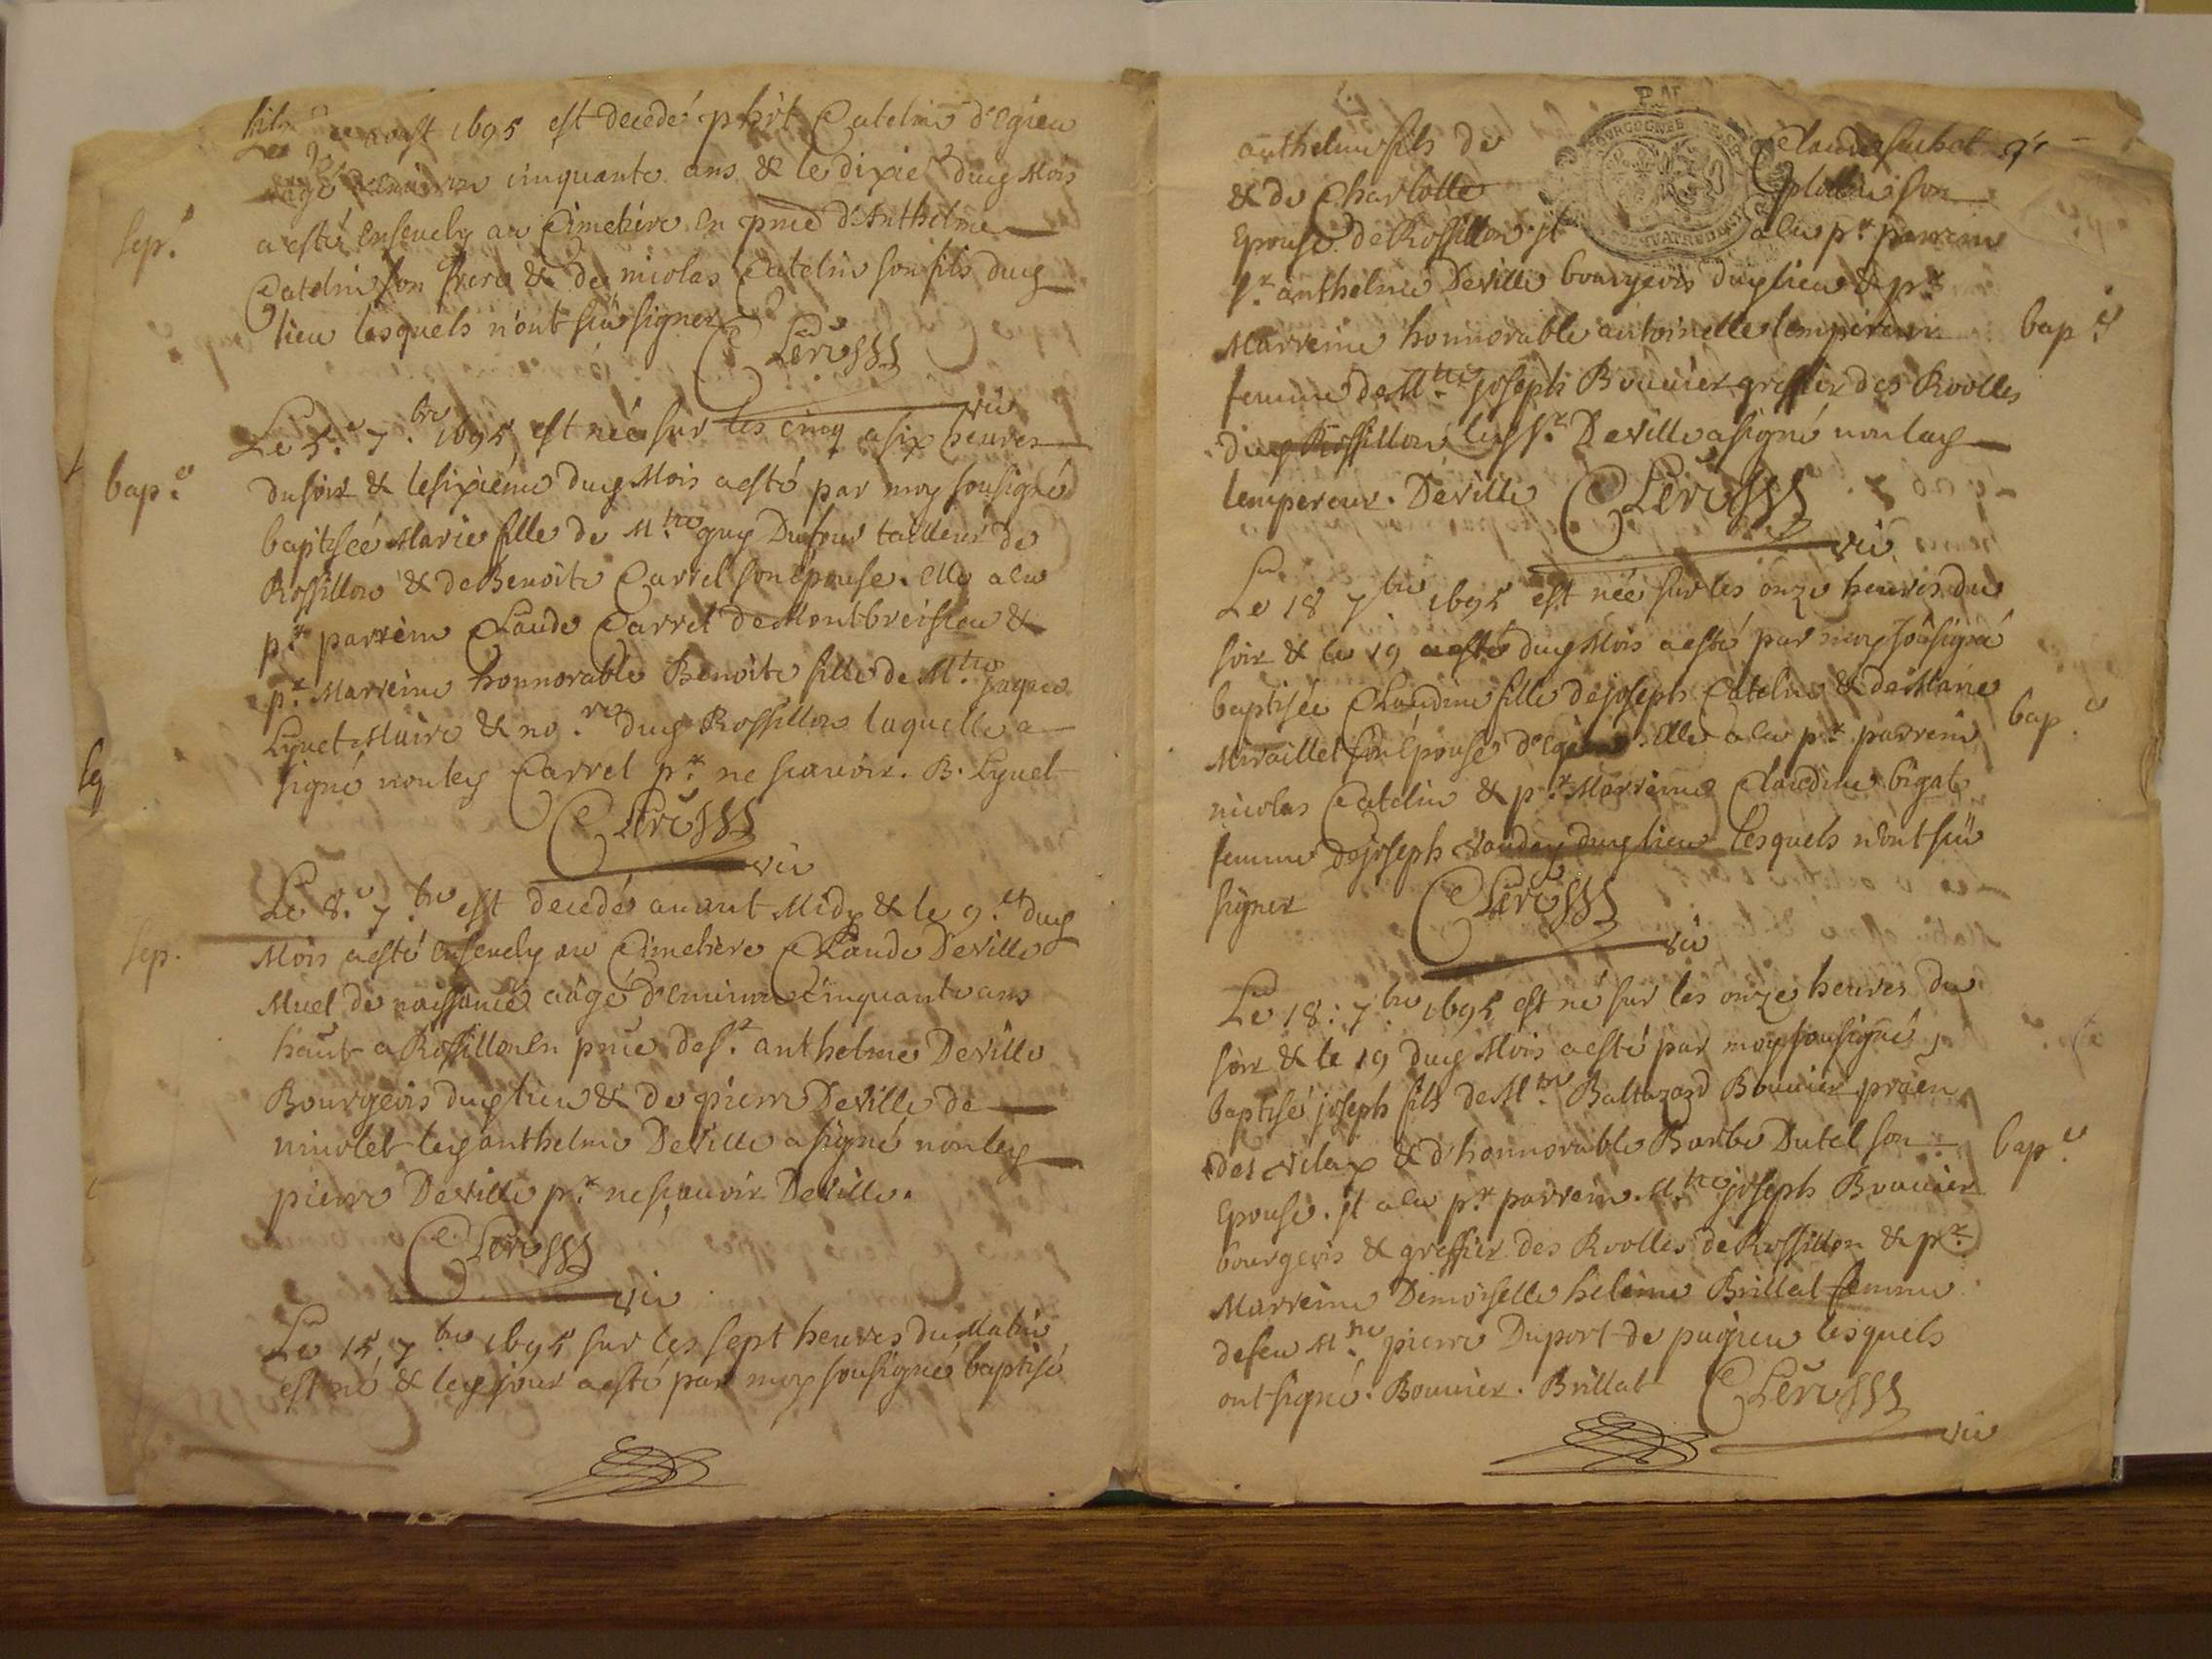 Le 9e aoust 1695 est decedé phirt Catelin d'Egieu
aagé d'environ cinquante ans & le dixie dug Mois
sep.
a esté Ensevely au Cimetière En pnce d'Anthelme
Catelin son frere & de nicolas Catelin son fils dug
lieu lesquels n'ont sçu signer
Clerc
vic
Le 5.e 7.bre 1695 est née sur les cinq a six heures
bap.e
du soir & le sixième dug Mois a esté par moy sousigné
baptisée Marie fille de M.tre guy Dufour tailleur de
Rossillon & de Benoite Carrel son epouse. Elle a eu
p.r parrein Claude Carrel de Montbreison &
p.r Marreine honnorable Benoite fille de M.tre jaque
Lynet Maire & no.re dug Rossillon laquelle a
signé non leg Carrel p.r ne scavoir. B. Lynet
Clerc
vic
Le 8.e 7.bre est decedé avant Midy & le 9.e dug
sep.
Mois a esté Ensevely au Cimetière Claude Deville
Muet de naissance aagé d'environ Cinquante ans
haut a Rossillon En pnce de s.r anthelme Deville
Bourgeois dug lieu & de pierre Deville de
leg anthelme Deville a signé non leg
pierre Deville p.r ne scavoir Deville.
Clerc
vic
Le 15 7.bre 1695 sur les sept heures du Matin
est né & leg jour a esté par moy sousigné baptisé
BOURGOGNE
anthelme fils de Claude
& de Charlotte son
Epouse de Rossillon jl a eu p.r parrein
s.r anthelme Deville bourgeois dug lieu & p.r
Marreine honnorable antoinette lempereur
bap.e
femme de M.tre joseph Bouvier greffier des Roolles
dug Rossillon leg s.r Deville a signé non lag
lempereur. Deville Clerc
vic
Le 18 7.bre 1695 est née sur les onze heures du
soir & le 19 a esté dug Mois a esté par moy sousigné
baptisée Claudine fille de joseph Catelin & de Marie
bap.e
Miraillet son Epouse d'Egieu. Elle a eu p.r parrein
nicolas Catelin & p.r Marreine Claudine bigat
femme de joseph vauday dug lieu lesquels n'ont sçu
signer Clerc
vic
Le 18. 7.bre 1695 est né sur les onze heures du
soir & le 19 dug Mois a esté par moy sousigné
baptisé joseph fils de M.tre Baltazard Bouvier praen
des velax & d'honnorable Barbe Dutel son
bap.e
Epouse. jl a eu p.r parrein M.tre joseph Bouvier
bourgeois & greffier des Roolles de Rossillon & p.r
Marreine Demoiselle helene Brillat femme
de feu M.tre pierre Duport de pugieu lesquels
ont signé. Bouvier. Brillat Clerc
vic